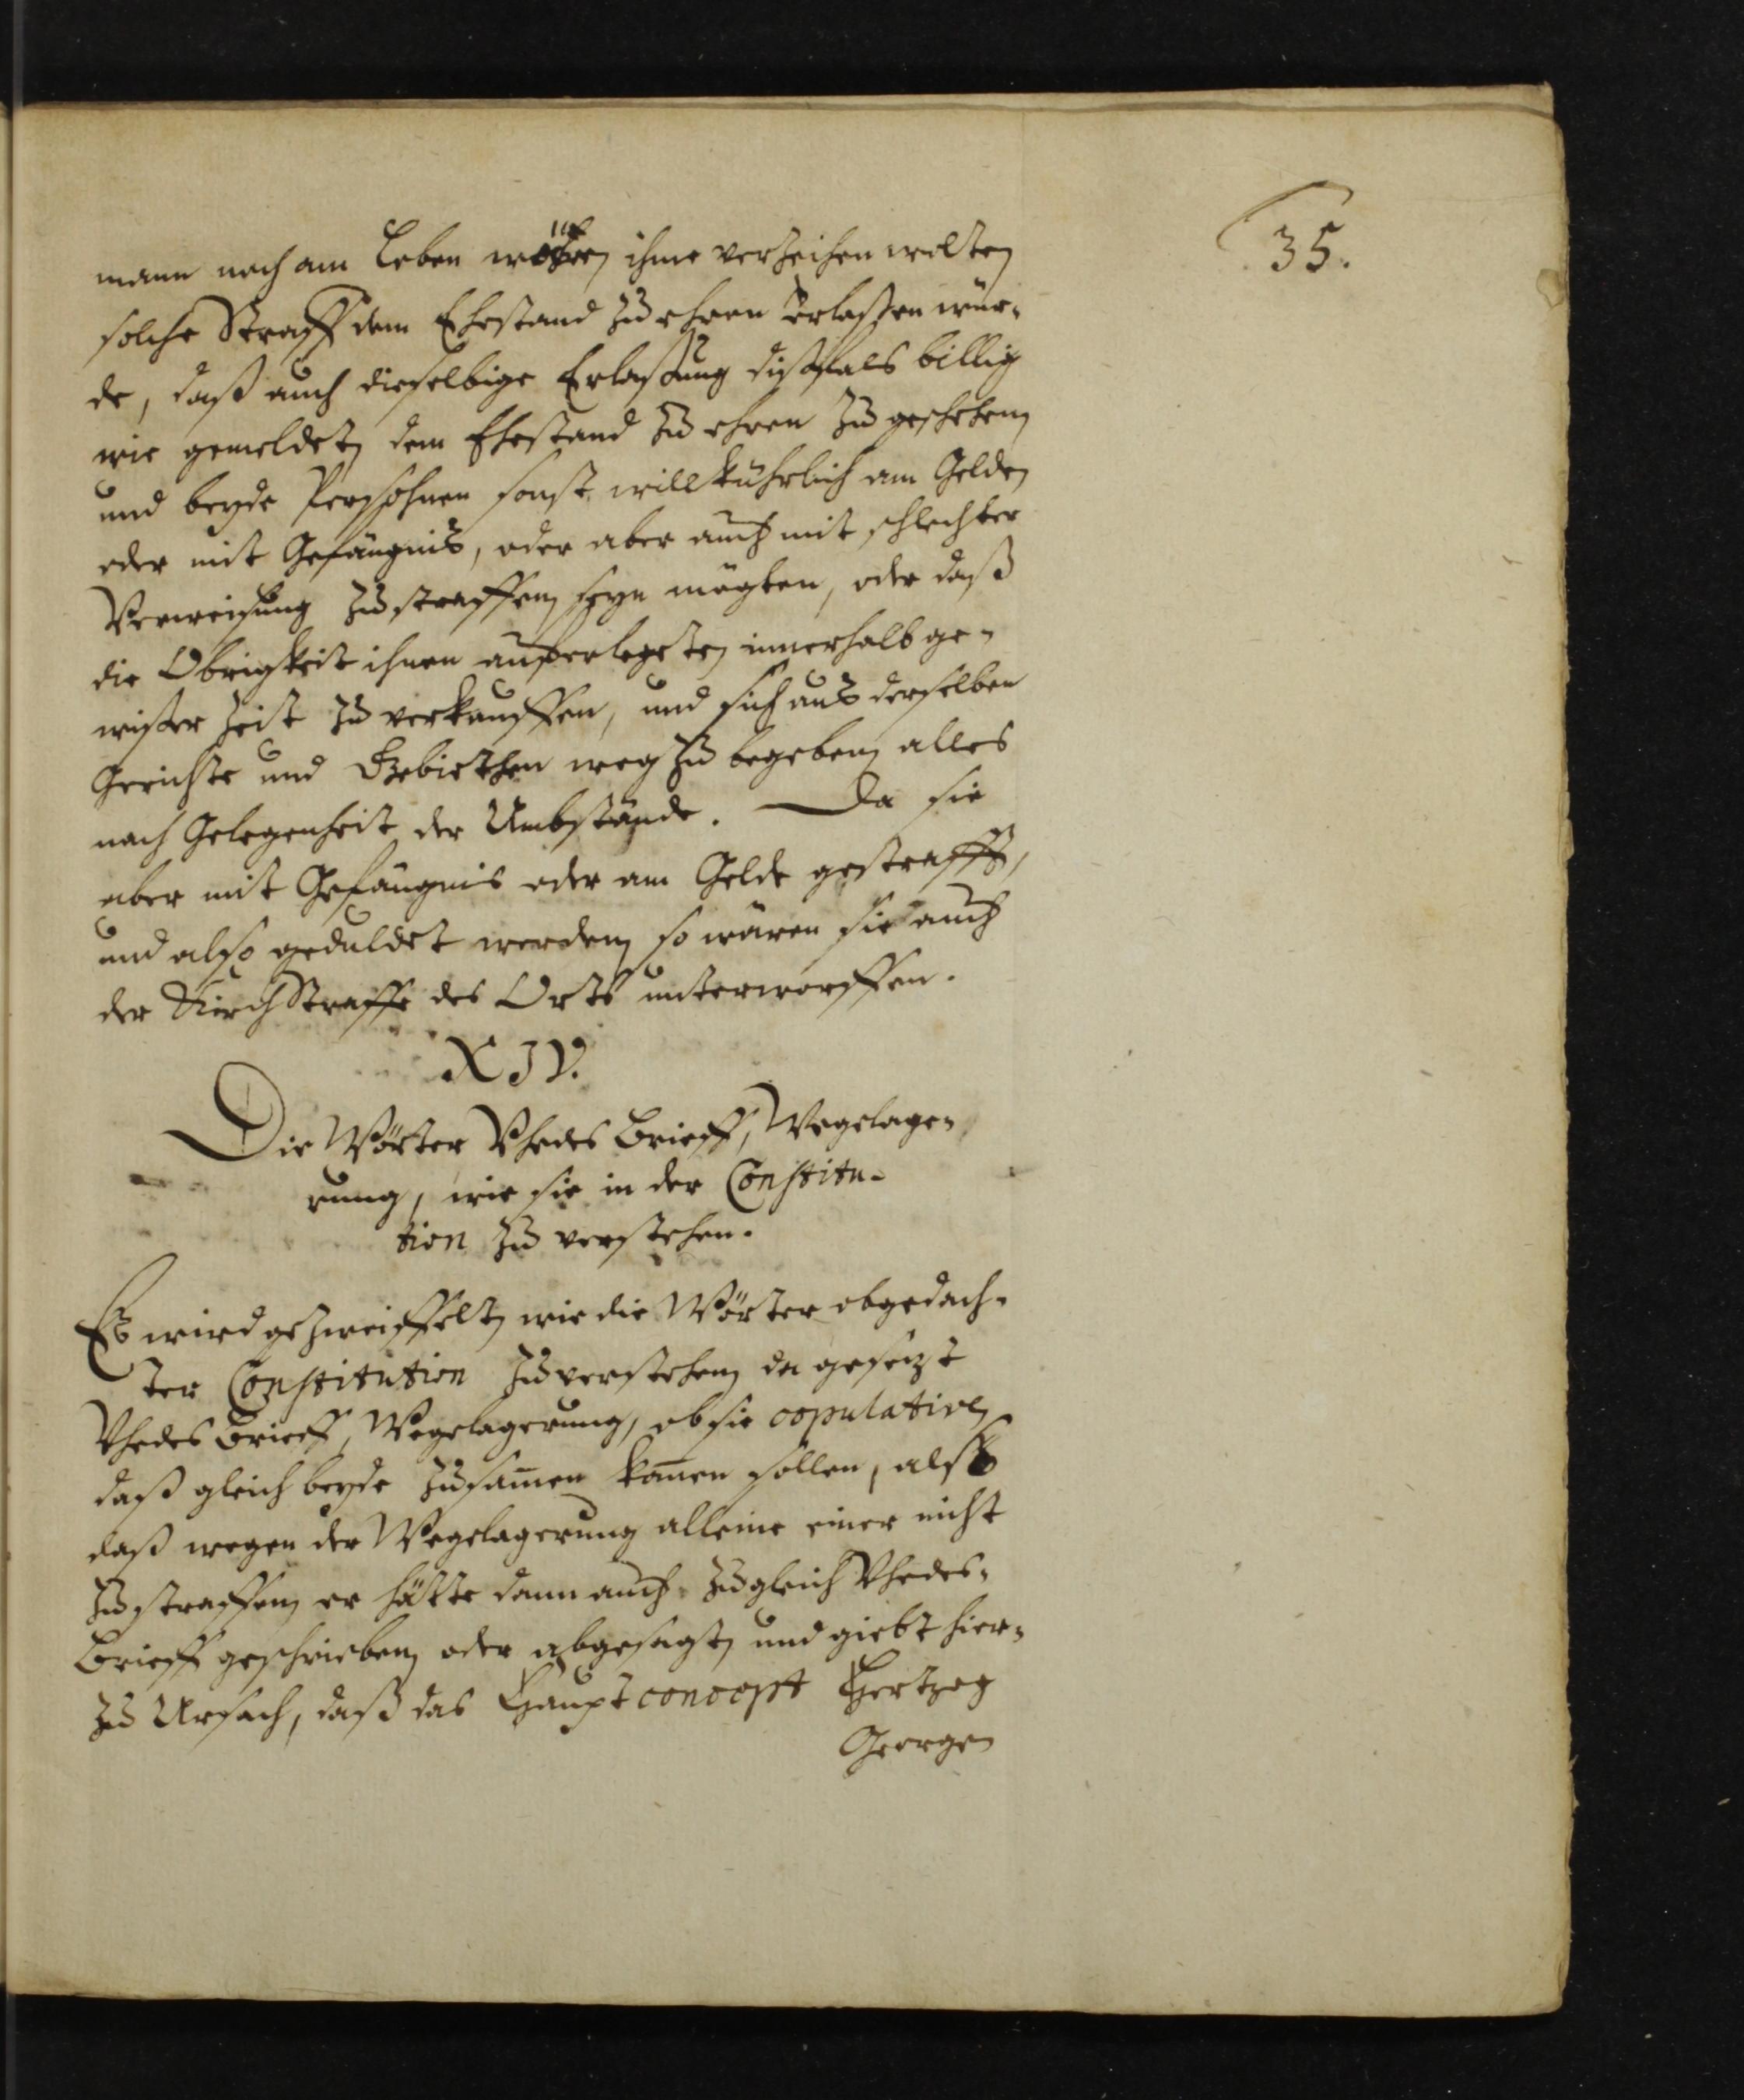 35.
mann noch am Leben währen ihme verzeihen wolten
solche Straff dem Ehestand zu ehren erlaßen wür-
de, daß auch dieselbige Erlaßung dißfals billig
wie gemeldet dem Ehestand zu ehren zu geschehen
und beyde Persohnen sonst willkührlich am Gelde
oder mit Gefängnis, oder aber auch mit schlechter
Verweisung zu straffen seyn mögten, oder daß
die Obrigkeit ihnen auferlegeten innerhalb ge-
wißer Zeit zu verkauffen, und sich aus derselben
Gerichte und Gebiethen weg zu begeben alles
nach Gelegenheit der Umbstände. Da sie
aber mit Gefängnis oder am Gelde gestrafft,
und also geduldet werden so wären sie auch
der Kirch Straffe des Orts unterworffen.
XIV.
Die Wörter Vheds Brieff, Wegelage-
rung, wie sie in der Constitu-
tion zu verstehen.
Es wird gezweiffelt wie die Wörter obgedach-
ter Constitution zu verstehen da gesezt
Vhedes Brieff, Wegelagerung, ob sie copulative
daß gleich beyde zusam̄en kom̄en sollen, also
daß wegen der Wegelagerung alleine einer nicht
zu straffen er hätte dann auch zugleich Vhedes-
Brieff geschrieben oder abgesagt und giebt hier-
zu Ursach, daß das Haupt concept Hertzog
Georgen